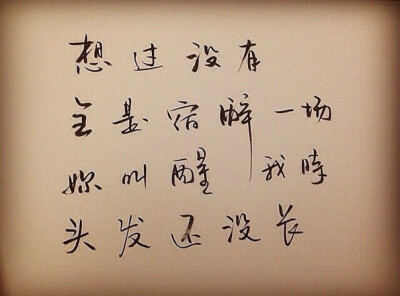 想过没有
全是宿醉一场
妳叫醒我時
头发还没长